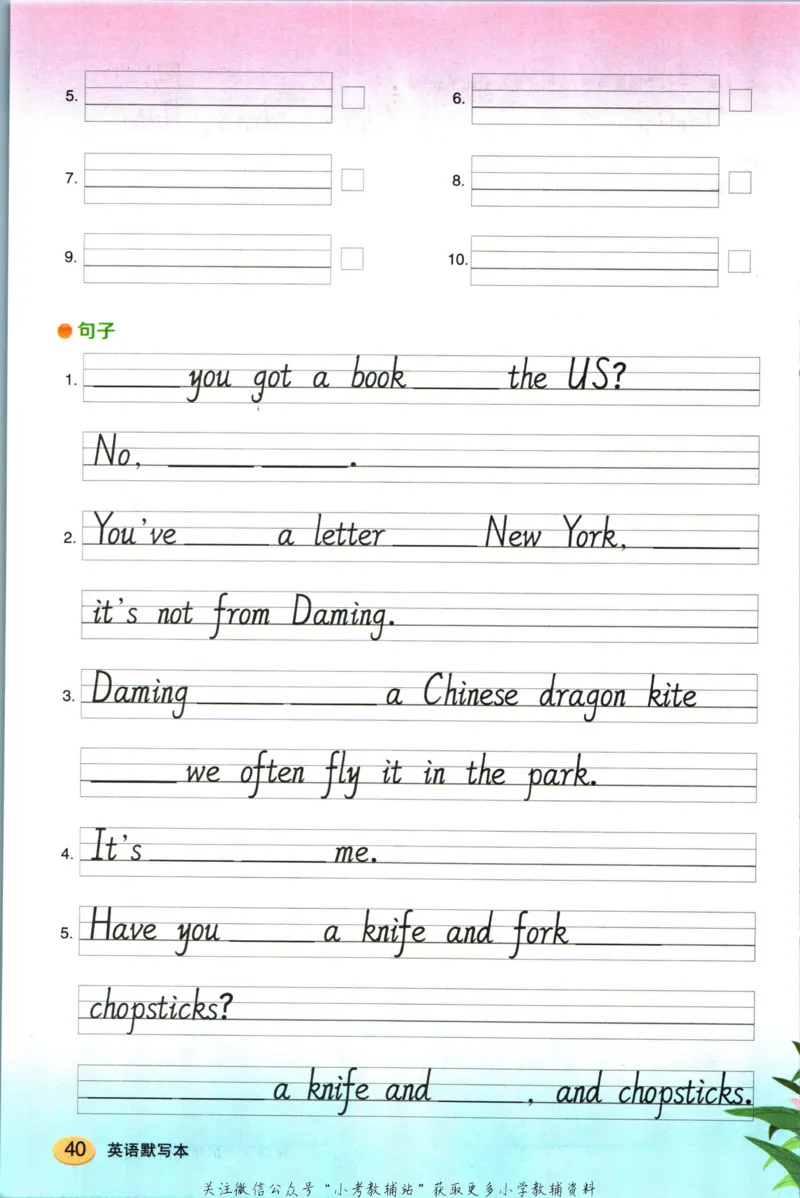 5. 6.
7. 8.
9. 10.
句子
1. ______ you got a book ______ the US?
No, ______ ______.
2. You've ______ a letter ______ New York, ______
it's not from Daming.
3. Daming ______ ______ a Chinese dragon kite
______ we often fly it in the park.
4. It's ______ ______ me.
5. Have you ______ a knife and fork ______
chopsticks?
____________ a knife and ______, and chopsticks.
40 英语默写本
关注微信公众号“小考教辅站”获取更多小学教辅资料